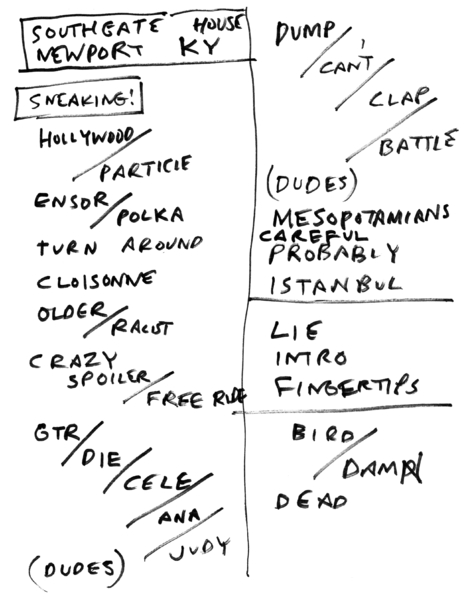 SOUTHGATE HOUSE
NEWPORT KY
SNEAKING!
HOLLYWOOD/
PARTICLE
ENSOR/
POLKA
TURN AROUND
CLOISONNE
OLDER/
RACIST
CRAZY
SPOILER/
FREE RIDE
GTR/
DIE/
CELE/
ANA/
JUDY
(DUDES)
DUMP/
CAN'T/
CLAP/
BATTLE
(DUDES)
MESOPOTAMIANS
CAREFUL
PROBABLY
ISTANBUL
LIE
INTRO
FINGERTIPS
BIRD/
DAMN
DEAD